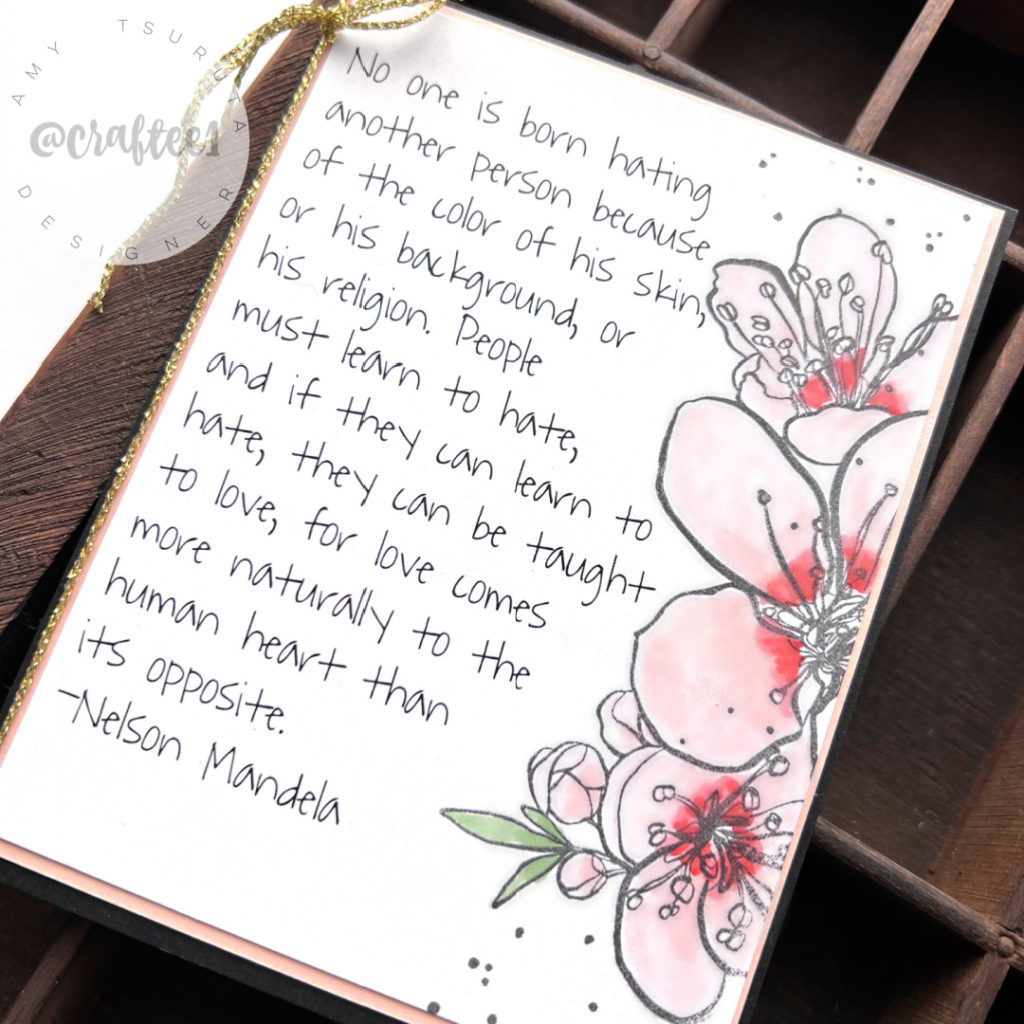 AMY TSURUTA
@craftee1
DESIGNER
No one is born hating
another person because
of the color of his skin,
or his background, or
his religion. People
must learn to hate,
and if they can learn to
hate, they can be taught
to love, for love comes
more naturally to the
human heart than
its opposite.
-Nelson Mandela